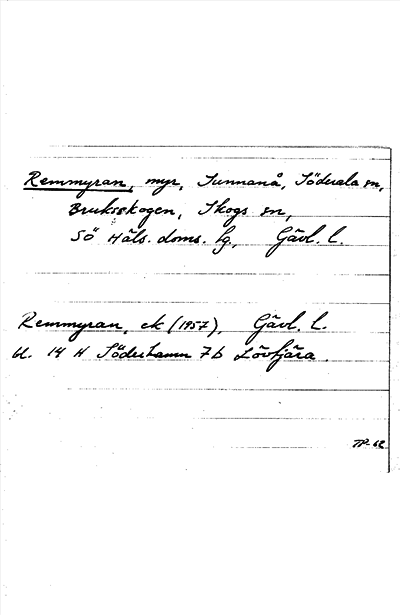 Remmyran, myr, Sunnanå, Söderala sn,
Bruksskogen, Skogs sn,
Sö Häls. doms. lg, Gävl. l.
Remmyran, ek (1957), Gävl. l.
bl. 14 H Söderhamn 7b Lövtjära
TP-62